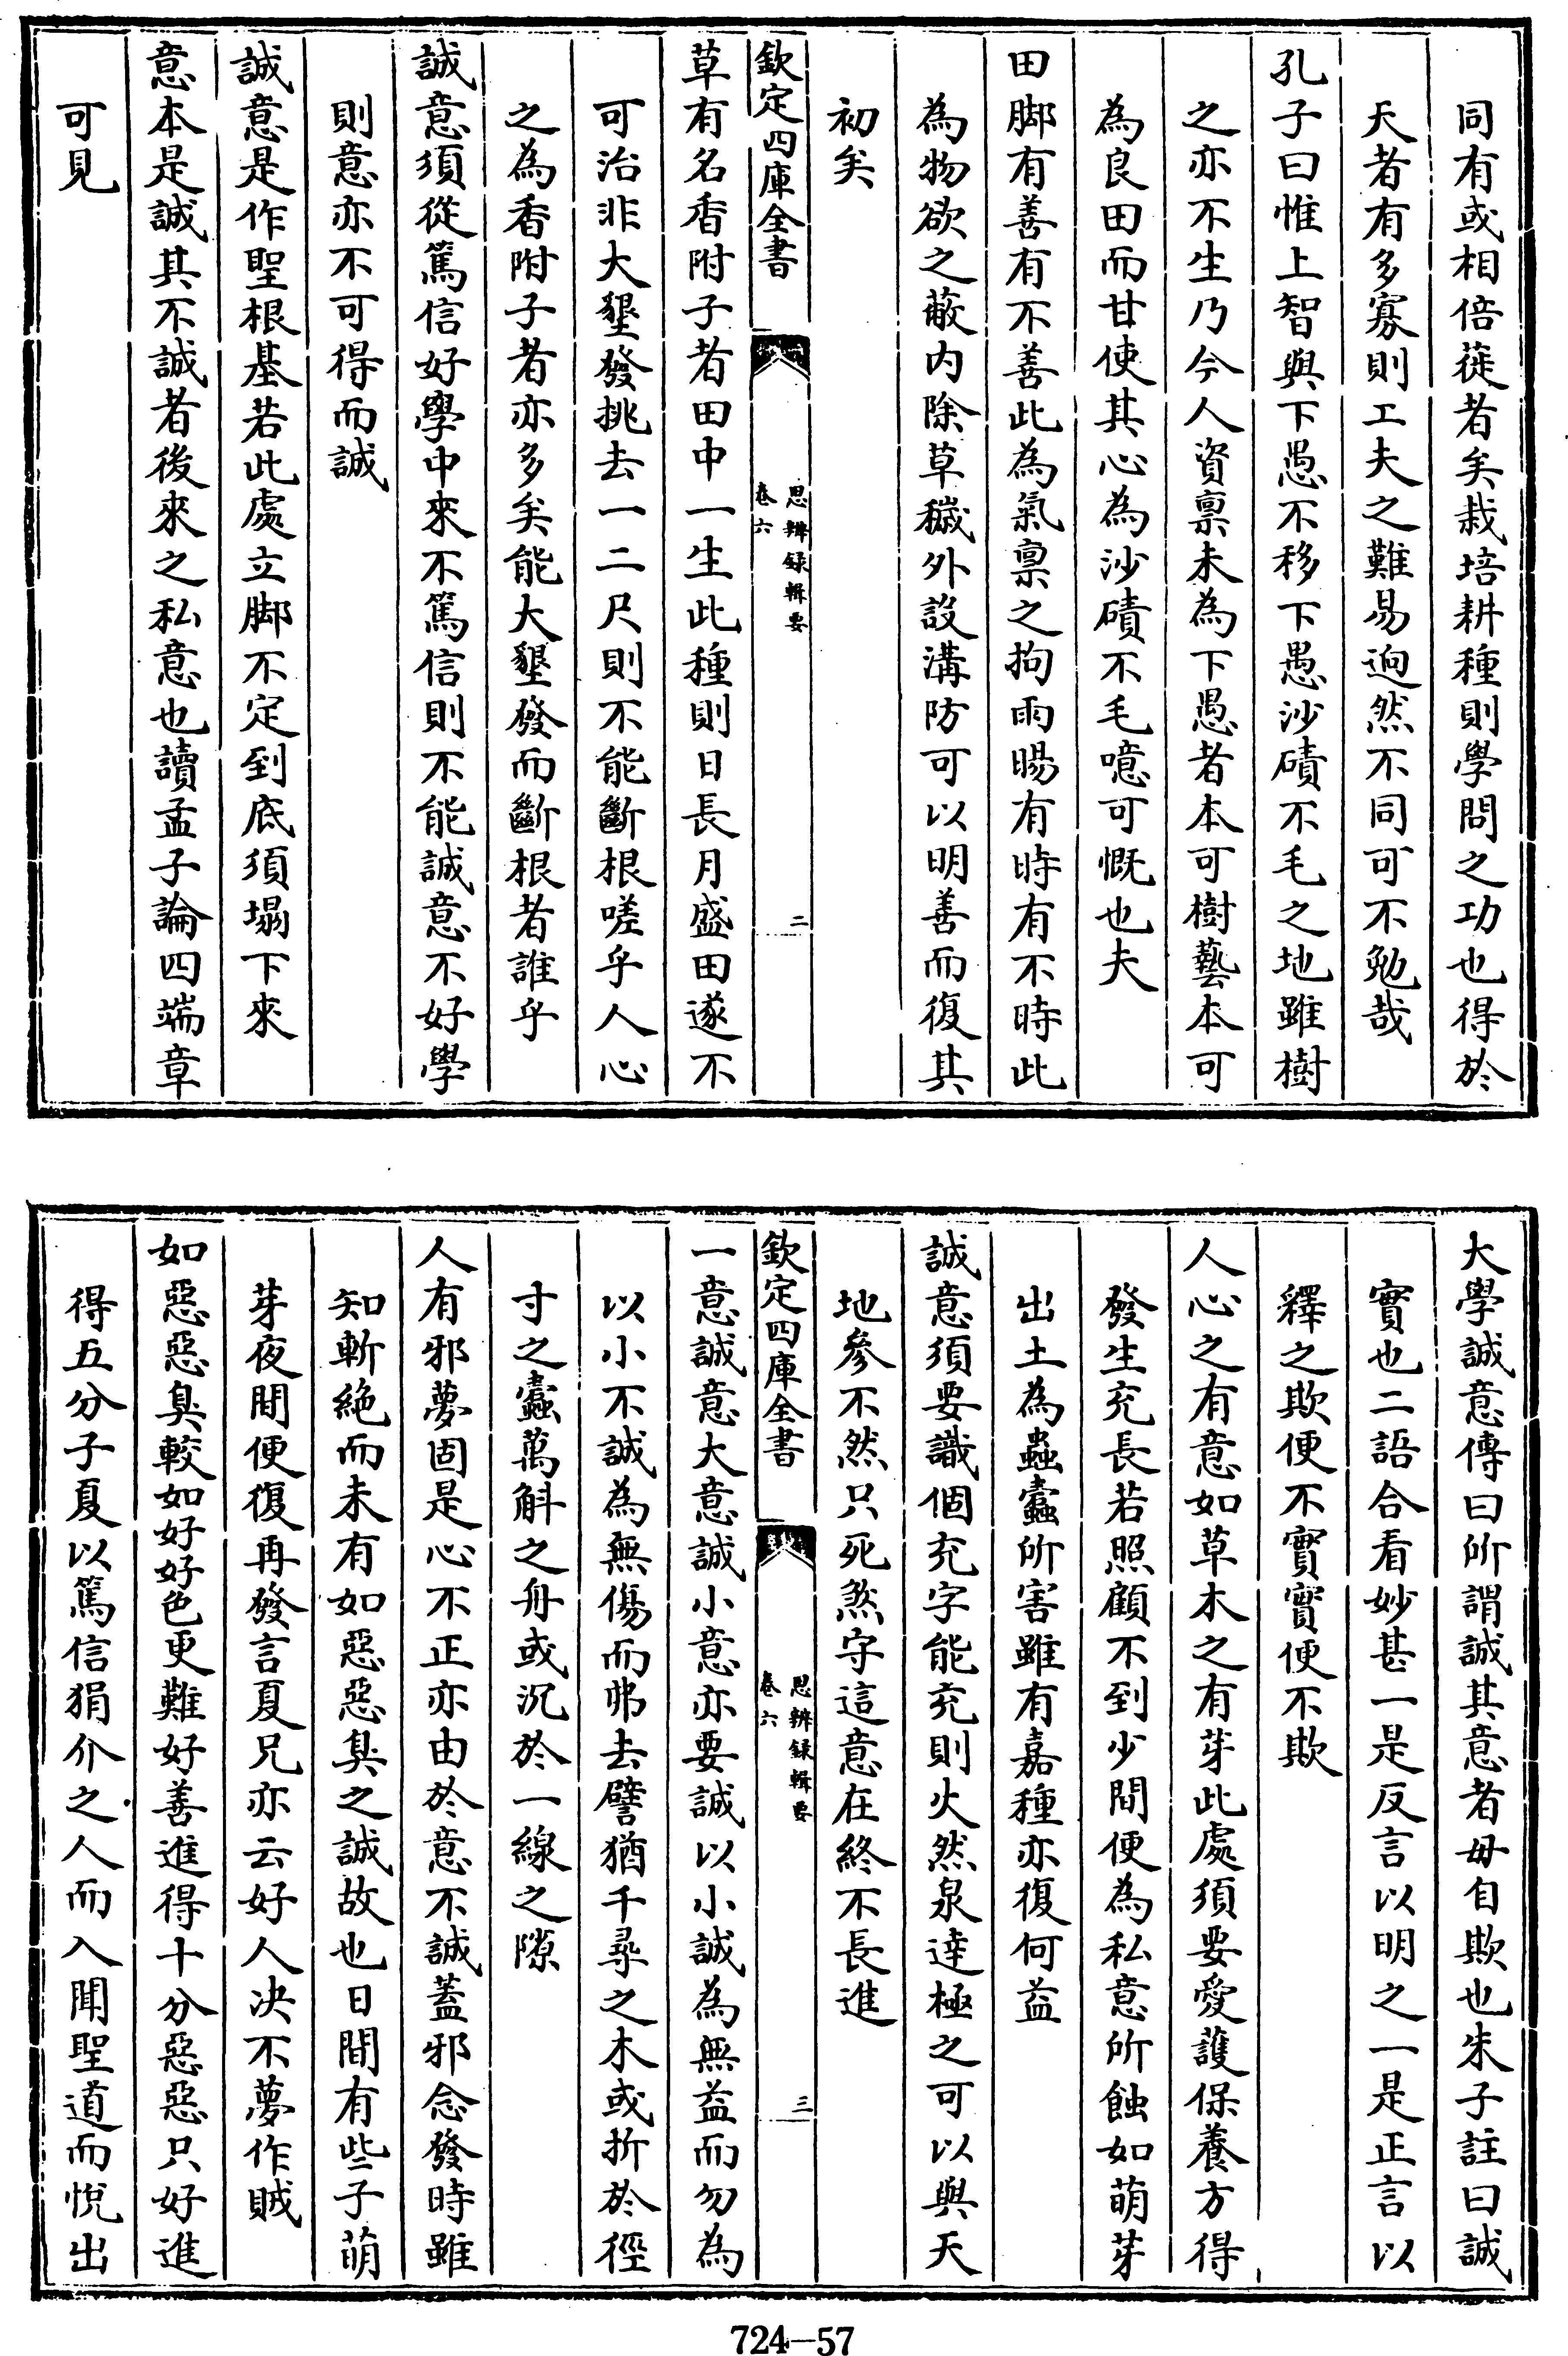 同有或相倍蓰者矣栽培耕種則學問之功也得於
天者有多寡則工夫之難易逈然不同可不勉哉
孔子曰惟上智與下愚不移下愚沙磧不毛之地雖樹
之亦不生乃今人資禀未為下愚者本可樹藝本可
為良田而甘使其心為沙磧不毛噫可慨也夫
田脚有善有不善此為氣禀之拘雨暘有時有不時此
為物欲之蔽内除草穢外設溝防可以明善而復其
初矣
欽定四庫全書
思辨録輯要
卷六
二
草有名香附子者田中一生此種則日長月盛田遂不
可治非大墾發挑去一二尺則不能斷根嗟乎人心
之為香附子者亦多矣能大墾發而斷根者誰乎
誠意須從篤信好學中來不篤信則不能誠意不好學
則意亦不可得而誠
誠意是作聖根基若此處立脚不定到底須塌下來
意本是誠其不誠者後來之私意也讀孟子論四端章
可見
大學誠意傳曰所謂誠其意者毋自欺也朱子註曰誠
實也二語合看妙甚一是反言以明之一是正言以
釋之欺便不實實便不欺
人心之有意如草木之有芽此處須要愛護保養方得
發生充長若照顧不到少間便為私意所蝕如萌芽
出土為蟲蠧所害雖有嘉種亦復何益
誠意須要識個充字能充則火然泉達極之可以與天
地參不然只死煞守這意在終不長進
欽定四庫全書
思辨録輯要
卷六
三
一意誠意大意誠小意亦要誠以小誠為無益而勿為
以小不誠為無傷而弗去譬猶千尋之木或折於徑
寸之蠧萬斛之舟或沉於一線之隙
人有邪夢固是心不正亦由於意不誠蓋邪念發時雖
知斬絶而未有如惡惡臭之誠故也日間有些子萌
芽夜間便復再發言夏兄亦云好人决不夢作賊
如惡惡臭較如好好色更難好善進得十分惡惡只好進
得五分子夏以篤信狷介之人而入聞聖道而悅出
724—57